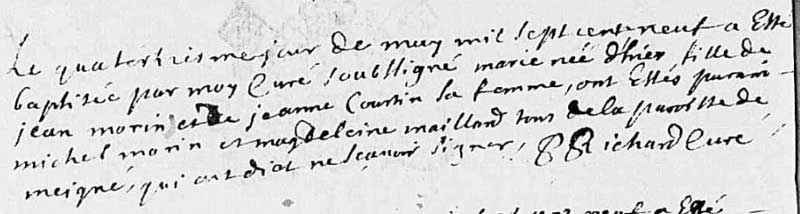 Le quatorziesme jour de may mil sept cent neuf a Esté
baptisée par moy Curé soubssigné marie née d'hier, fille de
jean morin et de jeanne Courtin sa femme, ont Estés parain
michel morin et magdeleine maillard tous de la paroisse de
meigné, qui ont dict ne sçavoir signer, Richard Curé
neuf a Esté